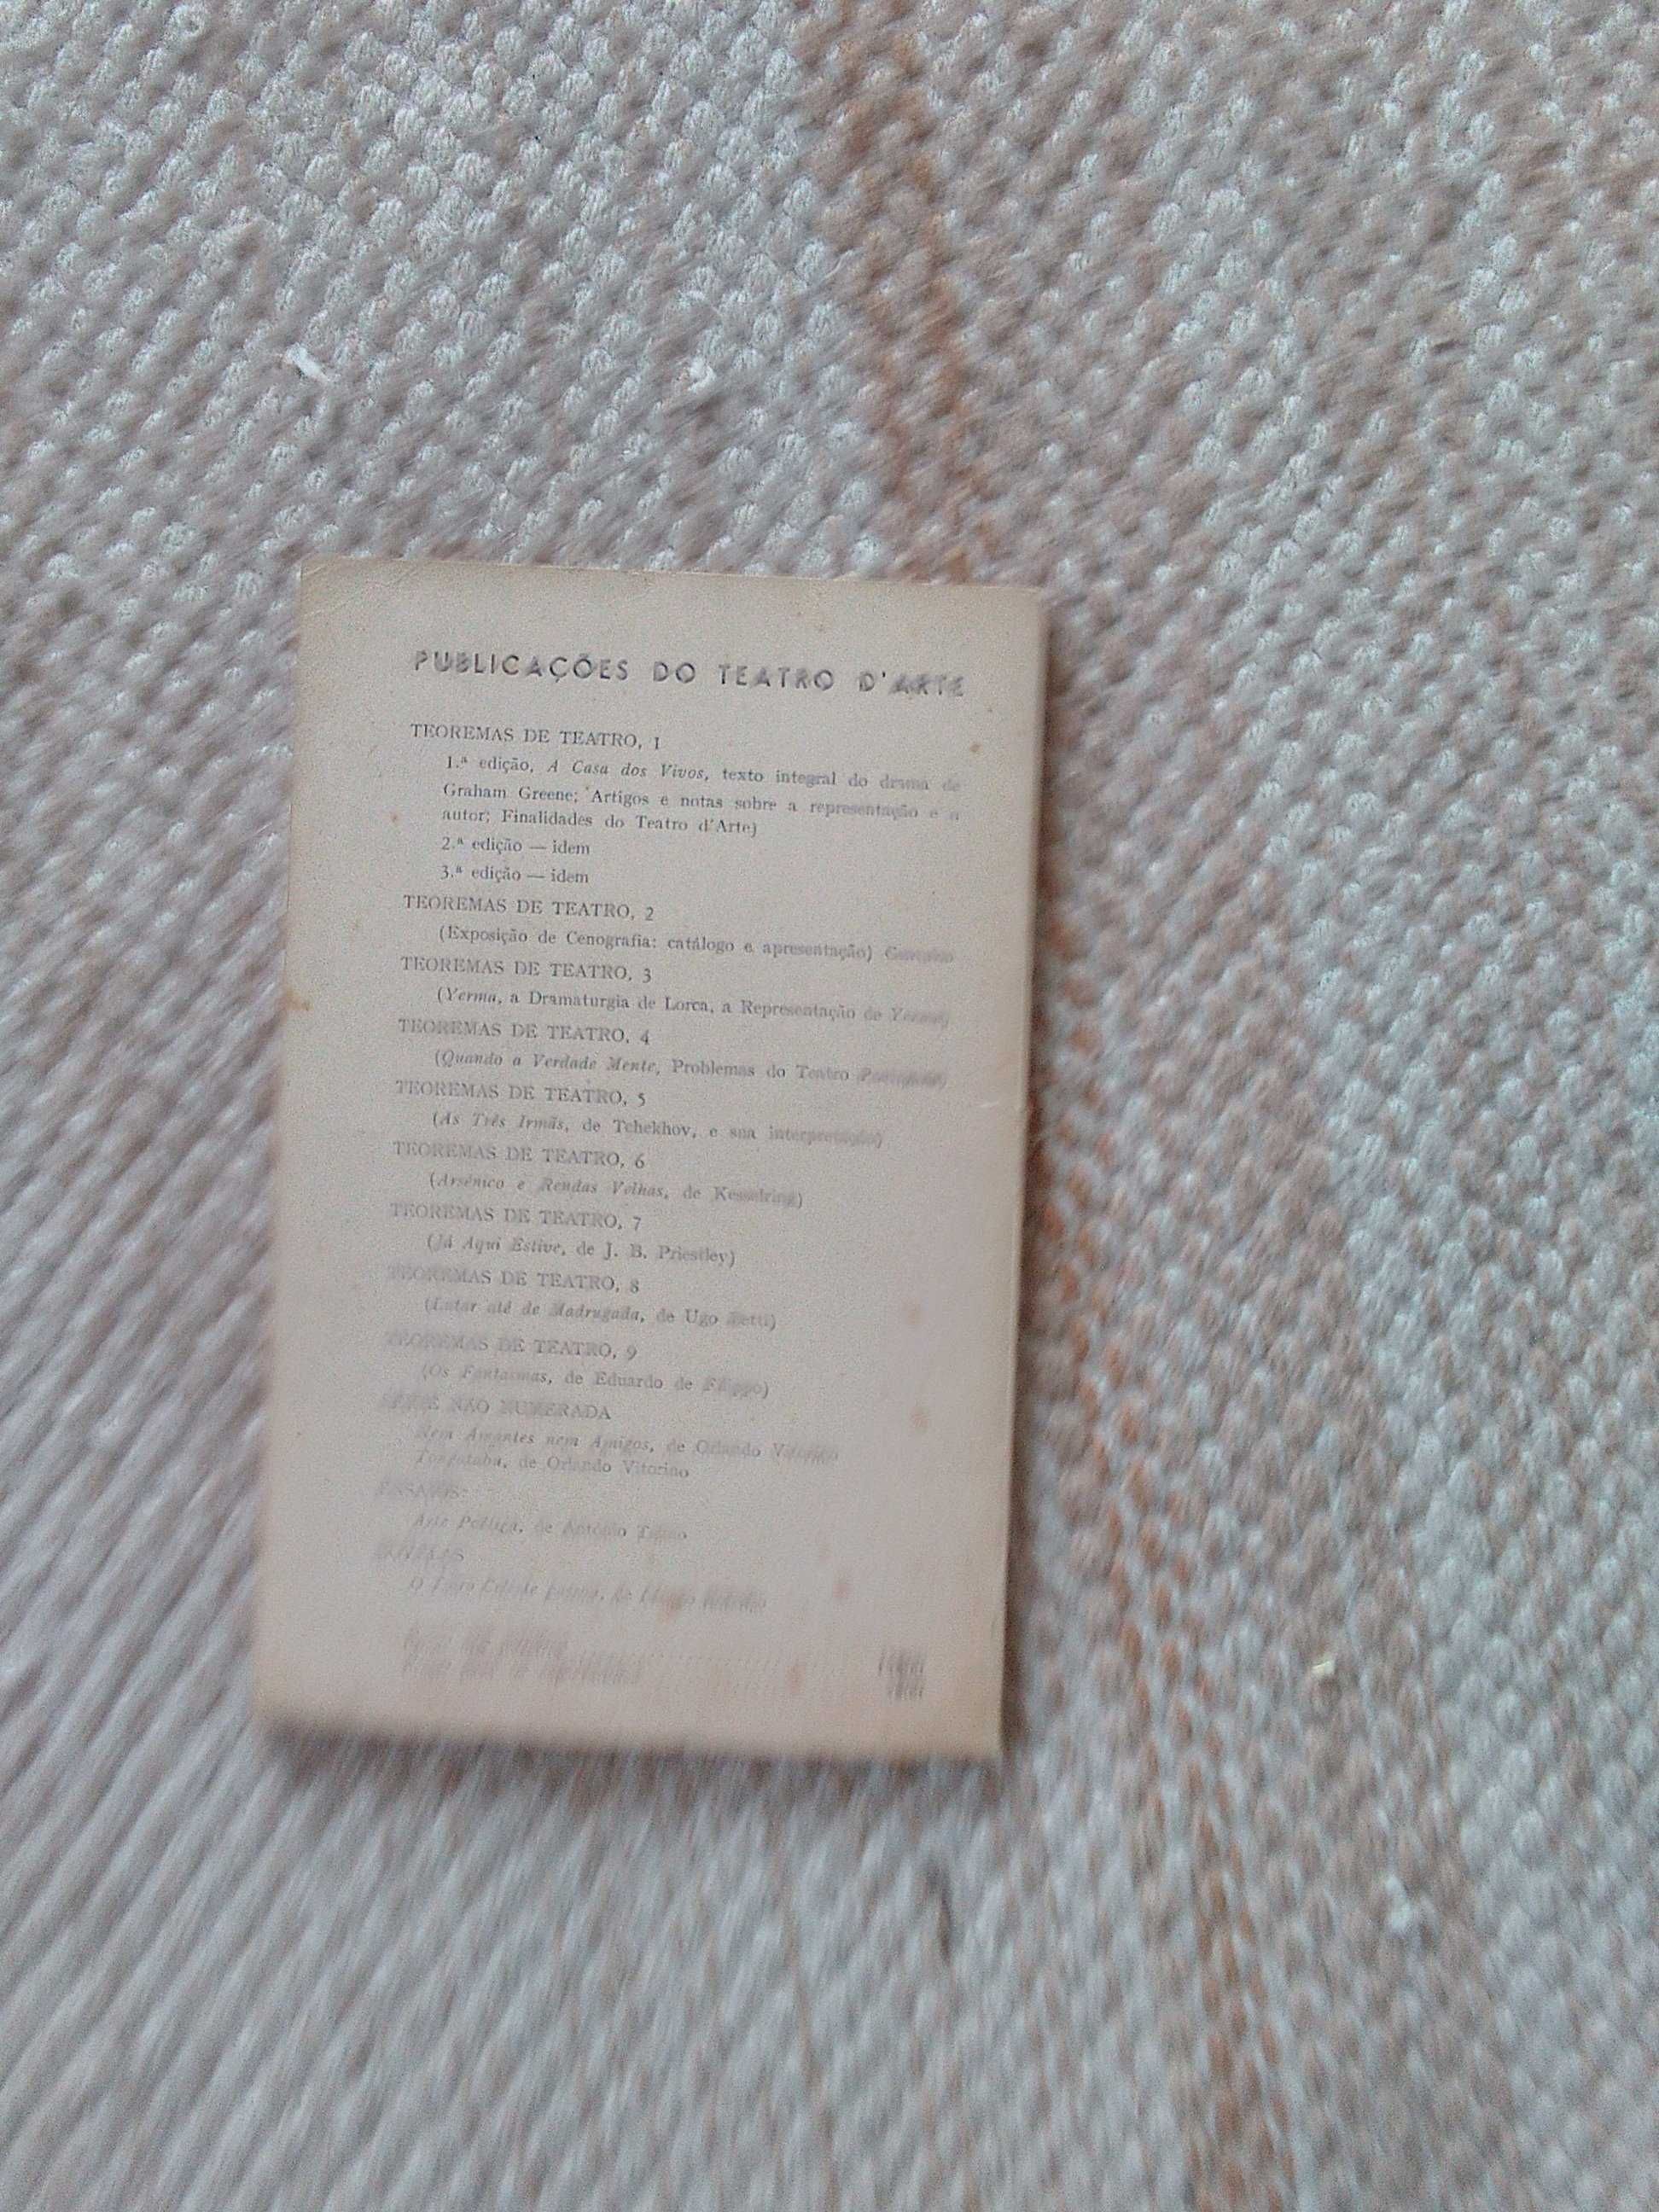 PUBLICAÇÕES DO TEATRO D'ARTE
TEOREMAS DE TEATRO, 1
1.ª edição, A Casa dos Vivos, texto integral do drama de
Graham Greene; Artigos e notas sobre a representação e o
autor; Finalidades do Teatro d'Arte)
2.ª edição — idem
3.ª edição — idem
TEOREMAS DE TEATRO, 2
(Exposição de Cenografia: catálogo e apresentação)
TEOREMAS DE TEATRO, 3
(Yerma, a Dramaturgia de Lorca, a Representação de Yerma)
TEOREMAS DE TEATRO, 4
(Quando a Verdade Mente, Problemas do Teatro
TEOREMAS DE TEATRO, 5
(As Três Irmãs, de Tchekhov, e sua interpretação)
TEOREMAS DE TEATRO, 6
(Arsénico e Rendas Velhas, de Kesselring)
TEOREMAS DE TEATRO, 7
(Já Aqui Estive, de J. B. Priestley)
TEOREMAS DE TEATRO, 8
(Lutar até de Madrugada, de Ugo Betti)
TEOREMAS DE TEATRO, 9
(Os Fantasmas, de Eduardo de Filippo)
SÉRIE NÃO NUMERADA
Nem Amantes nem Amigos, de Orlando Vitorino
de Orlando Vitorino
ENSAIOS:
Arte de António